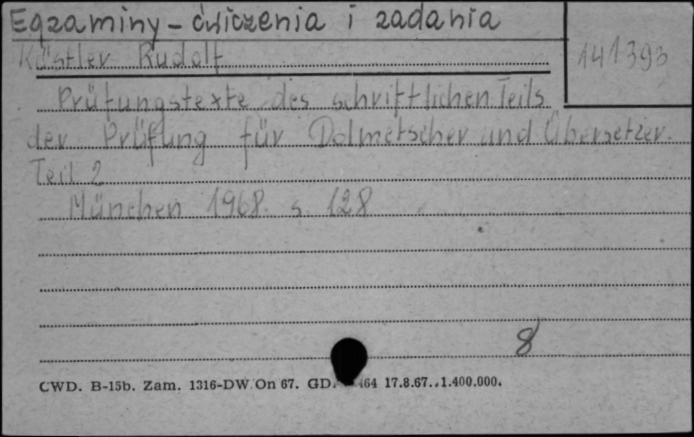 Egzaminy - ćwiczenia i zadania
Küstler Rudolf
141393
Prüfungstexte des schriftlichen Teils
der Prüfung für Dolmetscher und Übersetzer.
Teil 2
München 1968. s. 128
8
CWD. B-15b. Zam. 1316-DW. On 67. GD 464 17.8.67. 1.400.000.